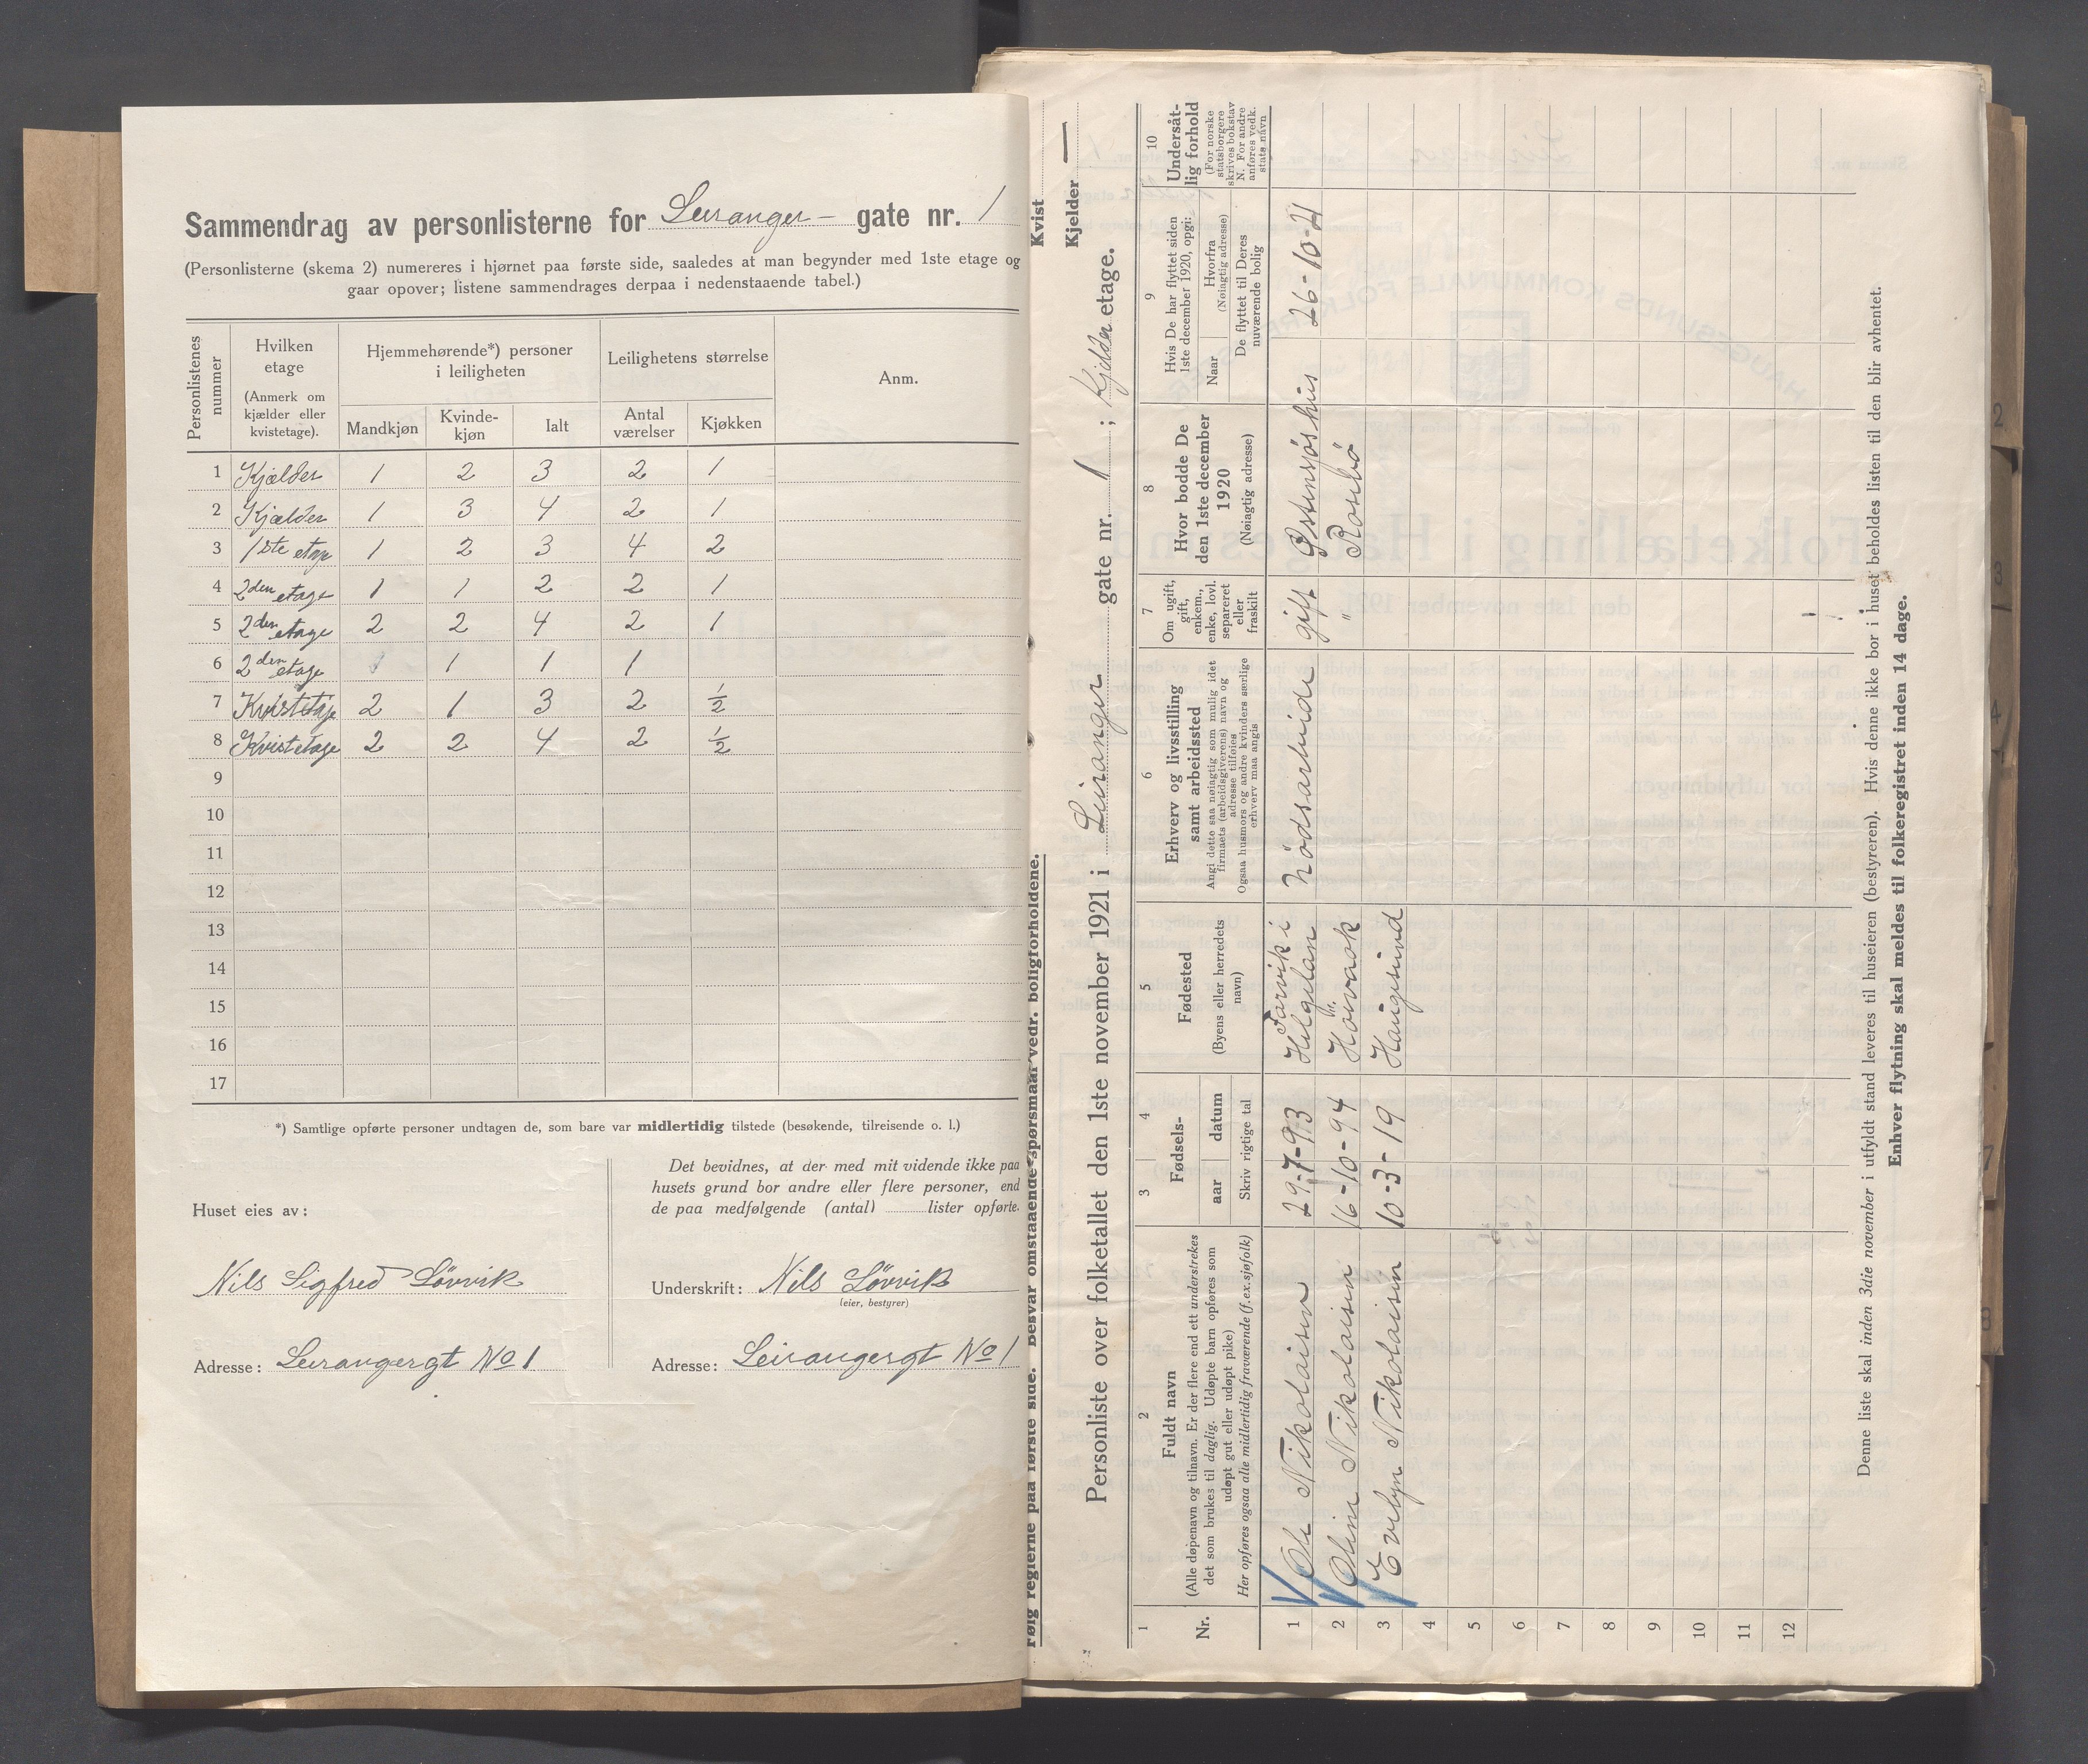 Sammendrag av personlisterne for Leiranger- gate nr. 1
(Personlisterne (skema 2) numereres i hjørnet paa første side, saaledes at man begynder med 1ste etage og
gaar opover; listene sammendrages derpaa i nedenstaaende tabel.)
Personlistenes nummer
Hvilken etage
(Anmerk om kjælder eller kvistetage).
Hjemmehørende*) personer i leiligheten
Leilighetens størrelse
Anm.
Mandkjøn
Kvinde-kjøn
Ialt
Antal værelser
Kjøkken
1 Kjælder 1 2 3 2 1
2 Kjælder 1 3 4 2 1
3 1ste etage 1 2 3 4 2
4 2den etage 1 1 2 2 1
5 2den etage 2 2 4 2 1
6 2den etage 1 1 1
7 Kvistetage 2 1 3 2 1/2
8 Kvistetage 2 2 4 2 1/2
9
10
11
12
13
14
15
16
17
*) Samtlige opførte personer undtagen de, som bare var midlertidig tilstede (besøkende, tilreisende o. l.)
Huset eies av:
Nils Sigfred Lövvik
Adresse: Leirangergt No 1
Det bevidnes, at der med mit vidende ikke paa
husets grund bor andre eller flere personer, end
de paa medfølgende (antal) lister opførte.
Underskrift: Nils Lövvik
(eier, bestyrer)
Adresse: Leirangergt No 1
Følg reglerne paa første side. Besvar omstaaende spørsmaal vedr. boligforholdene.
Kvist
Kjelder —
Personliste over folketallet den 1ste november 1921 i Leiranger gate nr. 1 ; Kjelder etage.
1
Nr.
2
Fuldt navn
(Alle døpenavn og tilnavn. Er der flere end ett understrekes
det som brukes til daglig. Udøpte barn opføres som
udøpt gut eller udøpt pike)
Her opføres ogsaa alle midlertidig fraværende (f.ex.sjøfolk)
3 4
Fødsels-
aar datum
Skriv rigtige tal
5
Fødested
(Byens eller herredets navn)
6
Erhverv og livsstilling
samt arbeidssted
Angi dette saa nøiagtig som mulig idet
firmaets (arbeidsgiverens) navn og
adresse tilføies
Ogsaa husmors og andre kvinders særlige
erhverv maa angis
7
Om ugift,
gift,
enkem.,
enke, lovl.
separeret
eller
fraskilt
8
Hvor bodde De
den 1ste december
1920
(Nøiagtig adresse)
9
Hvis De har flyttet siden
1ste december 1920, opgi:
Naar
Hvorfra
(Nøiagtig adresse)
De flyttet til Deres
nuværende bolig
10
Undersåt-
lig forhold
(For norske
statsborgere
skrives bokstav
N. For andre
anføres vedk.
stats navn
1 Ole Nikolaisen 29-7-93 nödsarbeide gift Östensjöshus 26-10-21
2 Oline Nikolaisen 16-10-94 " Rossebö
3 Evelyn Nikolaisen 10-3-19 Haugesund
4
5
6
7
8
9
10
11
12
Denne liste skal inden 3die november i utfyldt stand leveres til huseieren (bestyreren). Hvis denne ikke bor i huset beholdes listen til den blir avhentet.
Enhver flytning skal meldes til folkeregistret inden 14 dage.